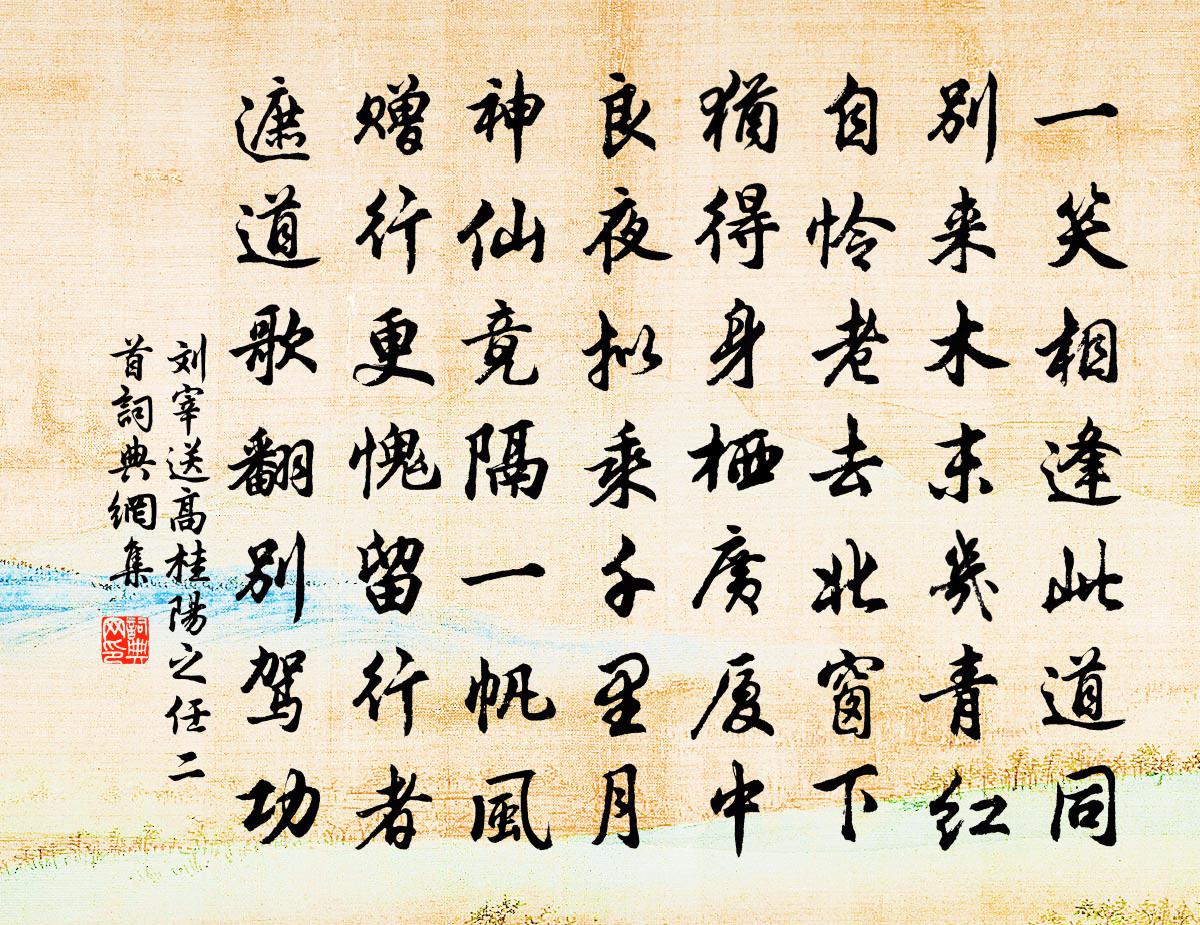 一笑相逢此道同
别来木末幾青红
自怜老去北窗下
猶得身栖廣厦中
良夜拟乘千里月
神仙竟隔一帆風
赠行更愧留行者
遮道歌翻别驾功
刘宰送高桂陽之任二
首詞典網集
詞典
网印